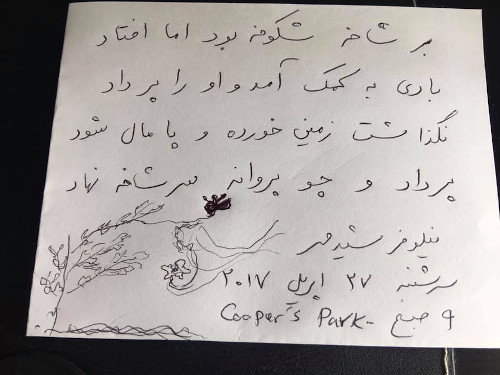 بر شاخه شکوفه بود اما افتاد
بادی به کمک آمد و او را پر داد
نگذاشت زمین خورده و پامال شود
پر داد و چو پروانه سر شاخه نهاد
نیلوفر شیدمهر
سه شنبه ۲۷ اپریل ۲۰۱۷
۹ صبح - Cooper's Park